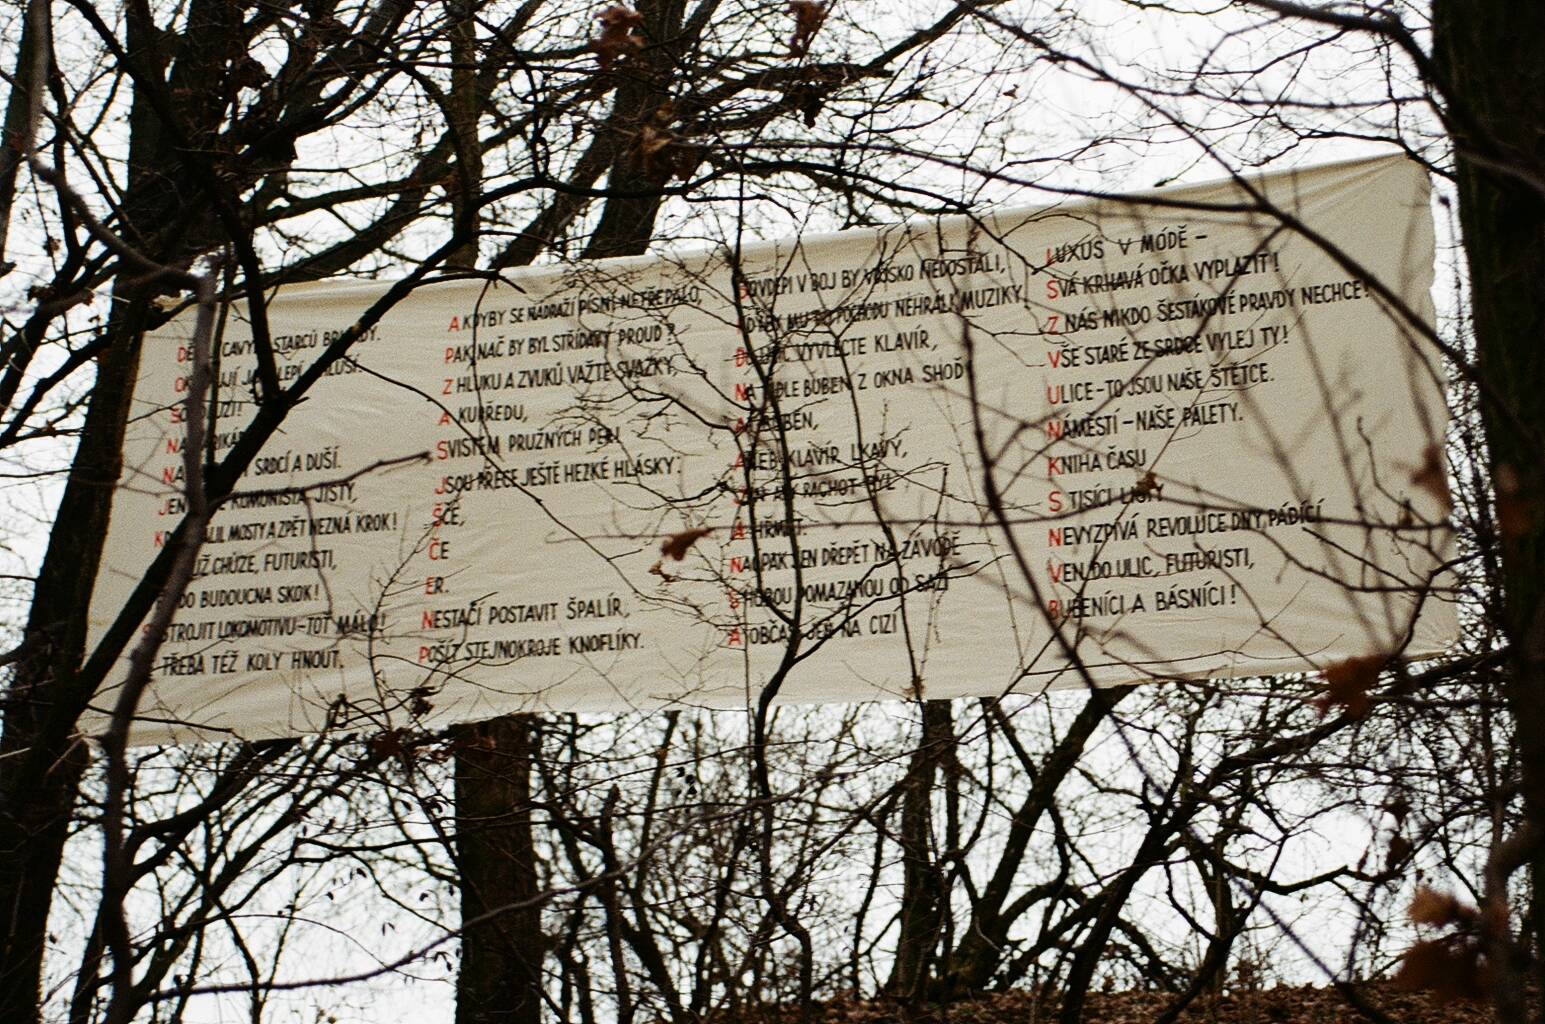 STARCŮ
SRDCÍ A DUŠÍ.
KOMUNISTA JISTÝ,
MOSTY A ZPĚT NEZNÁ KROK!
CHŮZE, FUTURISTI,
DO BUDOUCNA SKOK!
STROJIT LOKOMOTIVU – TOŤ MÁLO!
TŘEBA TÉŽ KOLY HNOUT.
A KDYBY SE NÁDRAŽÍ PÍSNÍ NETŘEPALO,
PAK NAČ BY BYL STŘÍDAVÝ PROUD?
Z HLUKU A ZVUKŮ VAŽTE SVAZKY,
A KUPŘEDU,
SVISTEM PRUŽNÝCH PER!
JSOU PŘECE JEŠTĚ HEZKÉ HLÁSKY:
ŠČE,
ČE
ER.
NESTAČÍ POSTAVIT ŠPALÍR,
POŠÍT STEJNOKROJE KNOFLÍKY.
V BOJ BY VOJSKO NEDOSTALI,
BY MU POCHODU NEHRÁLI MUZIKY.
VYVLECTE KLAVÍR,
BUBEN Z OKNA SHOĎ
BUBEN,
KLAVÍR LKAVÝ,
ABY RACHOT BYL
A HŘMOT.
NAOPAK JEN DŘEPĚT NA ZÁVODĚ
S HUBOU POMAZANOU OD SAZÍ
A OBČAS JEN NA CIZÍ
LUXUS V MÓDĚ –
SVÁ KRHAVÁ OČKA VYPLAZIT!
Z NÁS NIKDO ŠESTÁKOVÉ PRAVDY NECHCE!
VŠE STARÉ ZE SRDCE VYLEJ TY!
ULICE – TO JSOU NAŠE ŠTĚTCE.
NÁMĚSTÍ – NAŠE PALETY.
KNIHA ČASU
S TISÍCI LISTY
NEVYZPÍVÁ REVOLUCE DNY PÁDÍCÍ
VEN, DO ULIC, FUTURISTI,
BUBENÍCI A BÁSNÍCI!